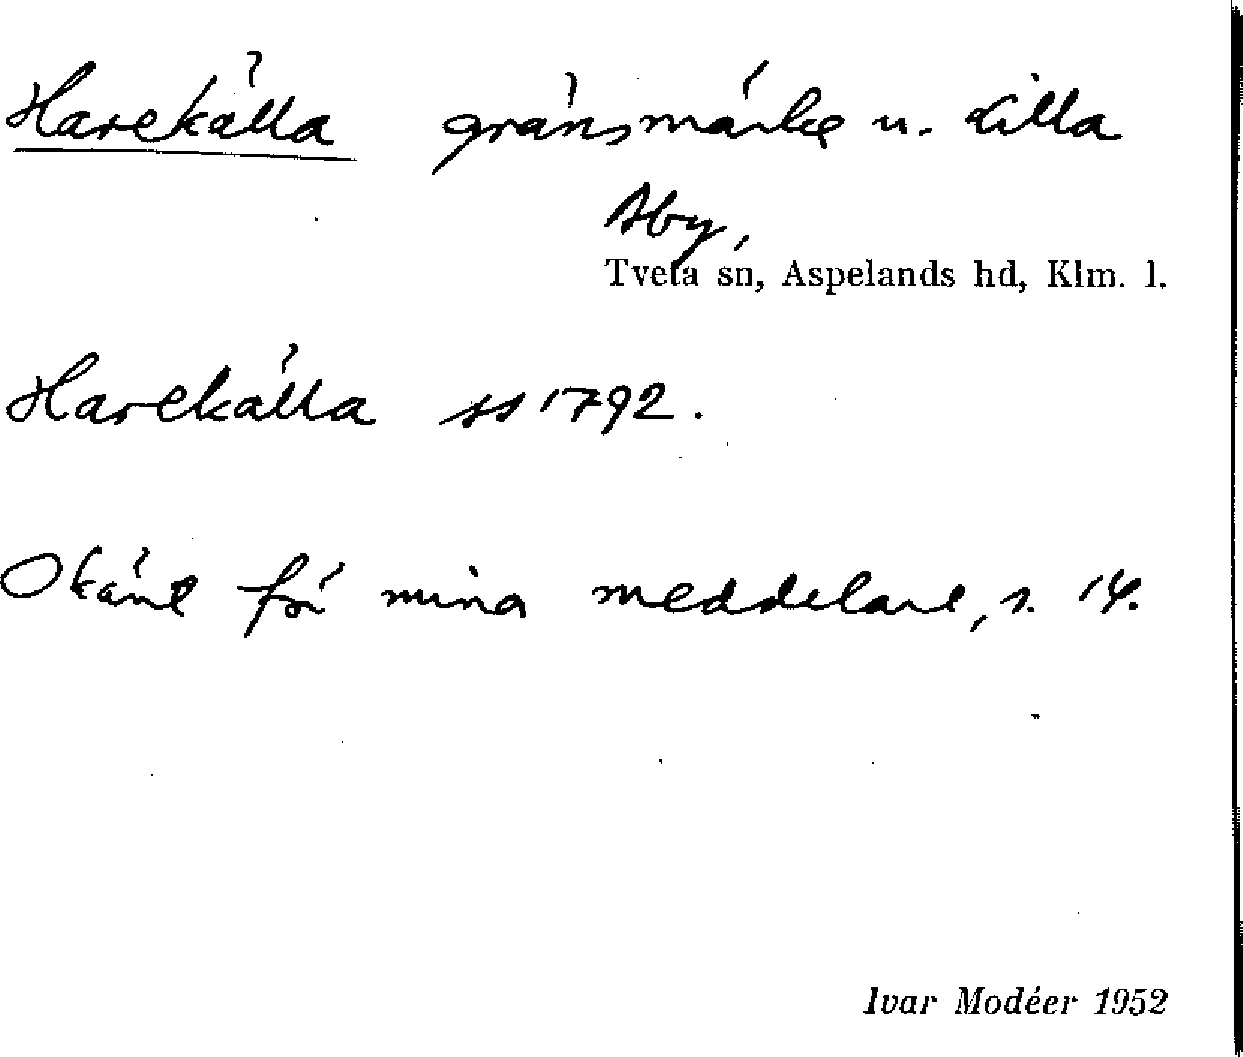 Harekälla gränsmärke u. Lilla
Åby,
Tveta sn, Aspelands hd, Klm. l.
Harekälla ss 1792.
Okänt för mina meddelare, s. 14.
Ivar Modéer 1952